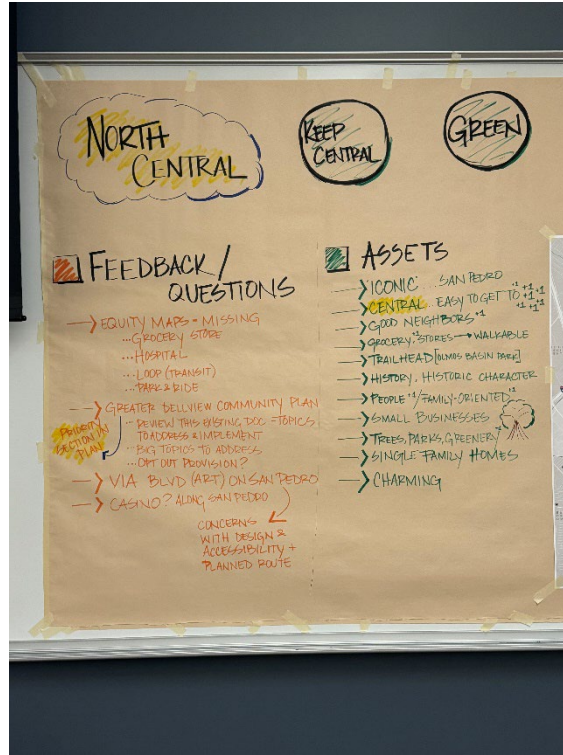 NORTH
CENTRAL
KEEP
CENTRAL
GREEN
FEEDBACK/
QUESTIONS
EQUITY MAPS - MISSING
...GROCERY STORE
...HOSPITAL
...LOOP (TRANSIT)
...PARK & RIDE
GREATER DELLVIEW COMMUNITY PLAN
- REVIEW THIS EXISTING DOC = TOPICS
TO ADDRESS & IMPLEMENT
- BIG TOPICS TO ADDRESS
- OPT OUT PROVISION?
PRIORITY
SECTION IN
PLAN
VIA BLVD (ART) ON SAN PEDRO
CASINO? ALONG SAN PEDRO
CONCERNS
WITH DESIGN &
ACCESSIBILITY +
PLANNED ROUTE
ASSETS
ICONIC ... SAN PEDRO
CENTRAL. EASY TO GET TO +1 +1 +1 +1 +1 +1
GOOD NEIGHBORS +1
GROCERY +1 STORES → WALKABLE
TRAILHEAD [OLMOS BASIN PARK]
HISTORY. HISTORIC CHARACTER
PEOPLE +1/FAMILY-ORIENTED +2
SMALL BUSINESSES
TREES, PARKS, GREENERY
SINGLE FAMILY HOMES
CHARMING